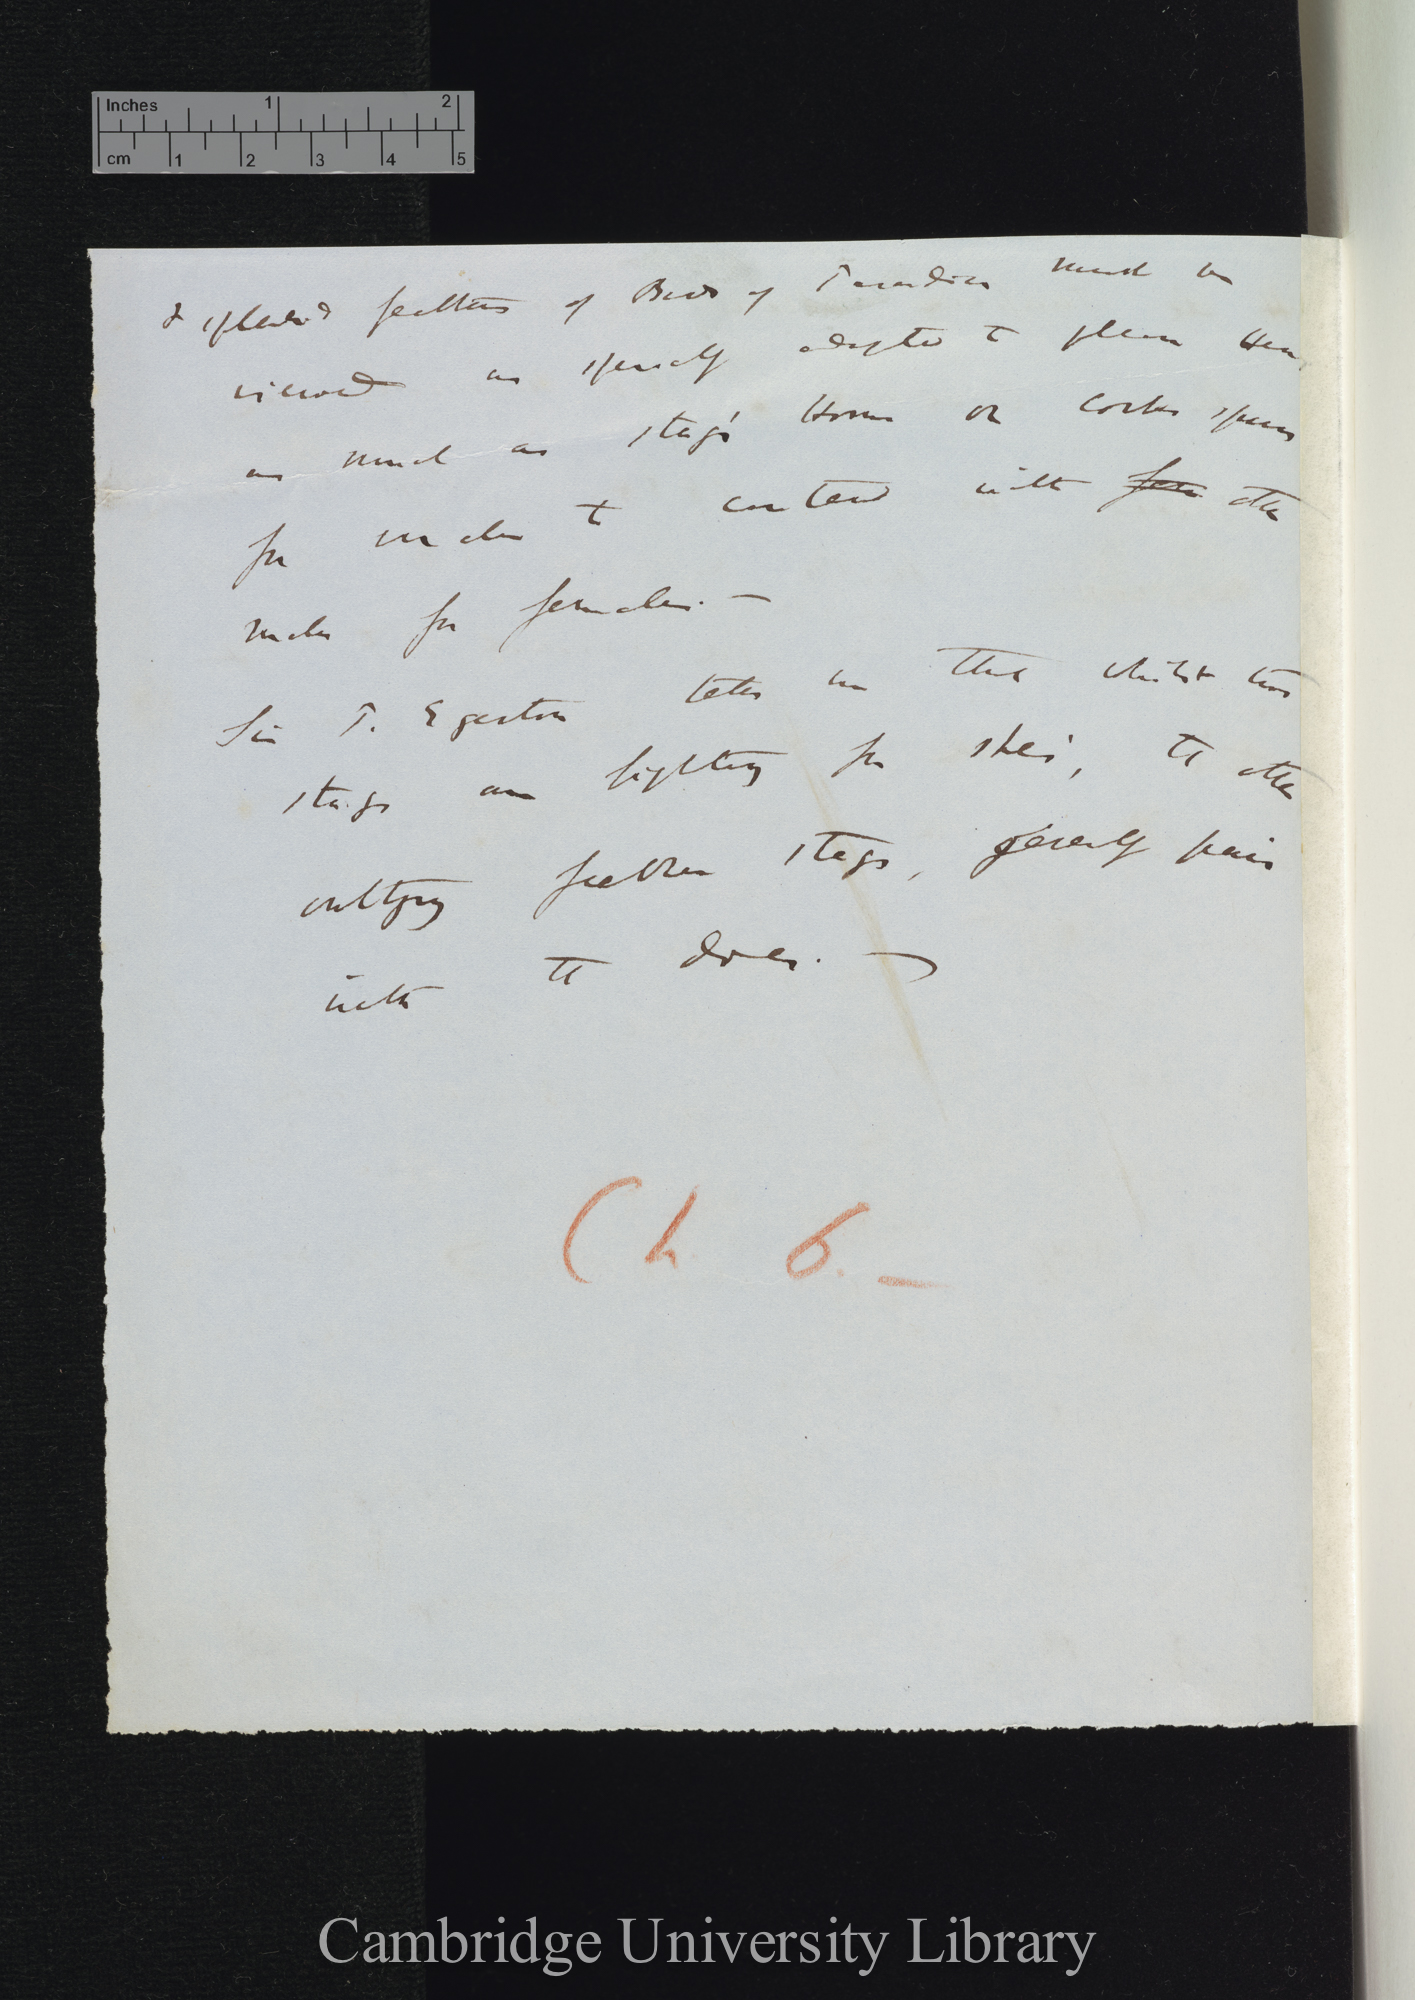 Inches 1 2
cm 1 2 3 4 5
& splendid feathers of Birds of Paradise must be
viewed as specially adapted to please Hens,
as much as stag's Horns or cocks spurs
for males to contend with fem other
males for females. —
Sir P. Egerton tells me that whilst two
stags are fighting for the other
outlying feebler stags, generally pair
with the does. —
Ch 6. —
Cambridge University Library